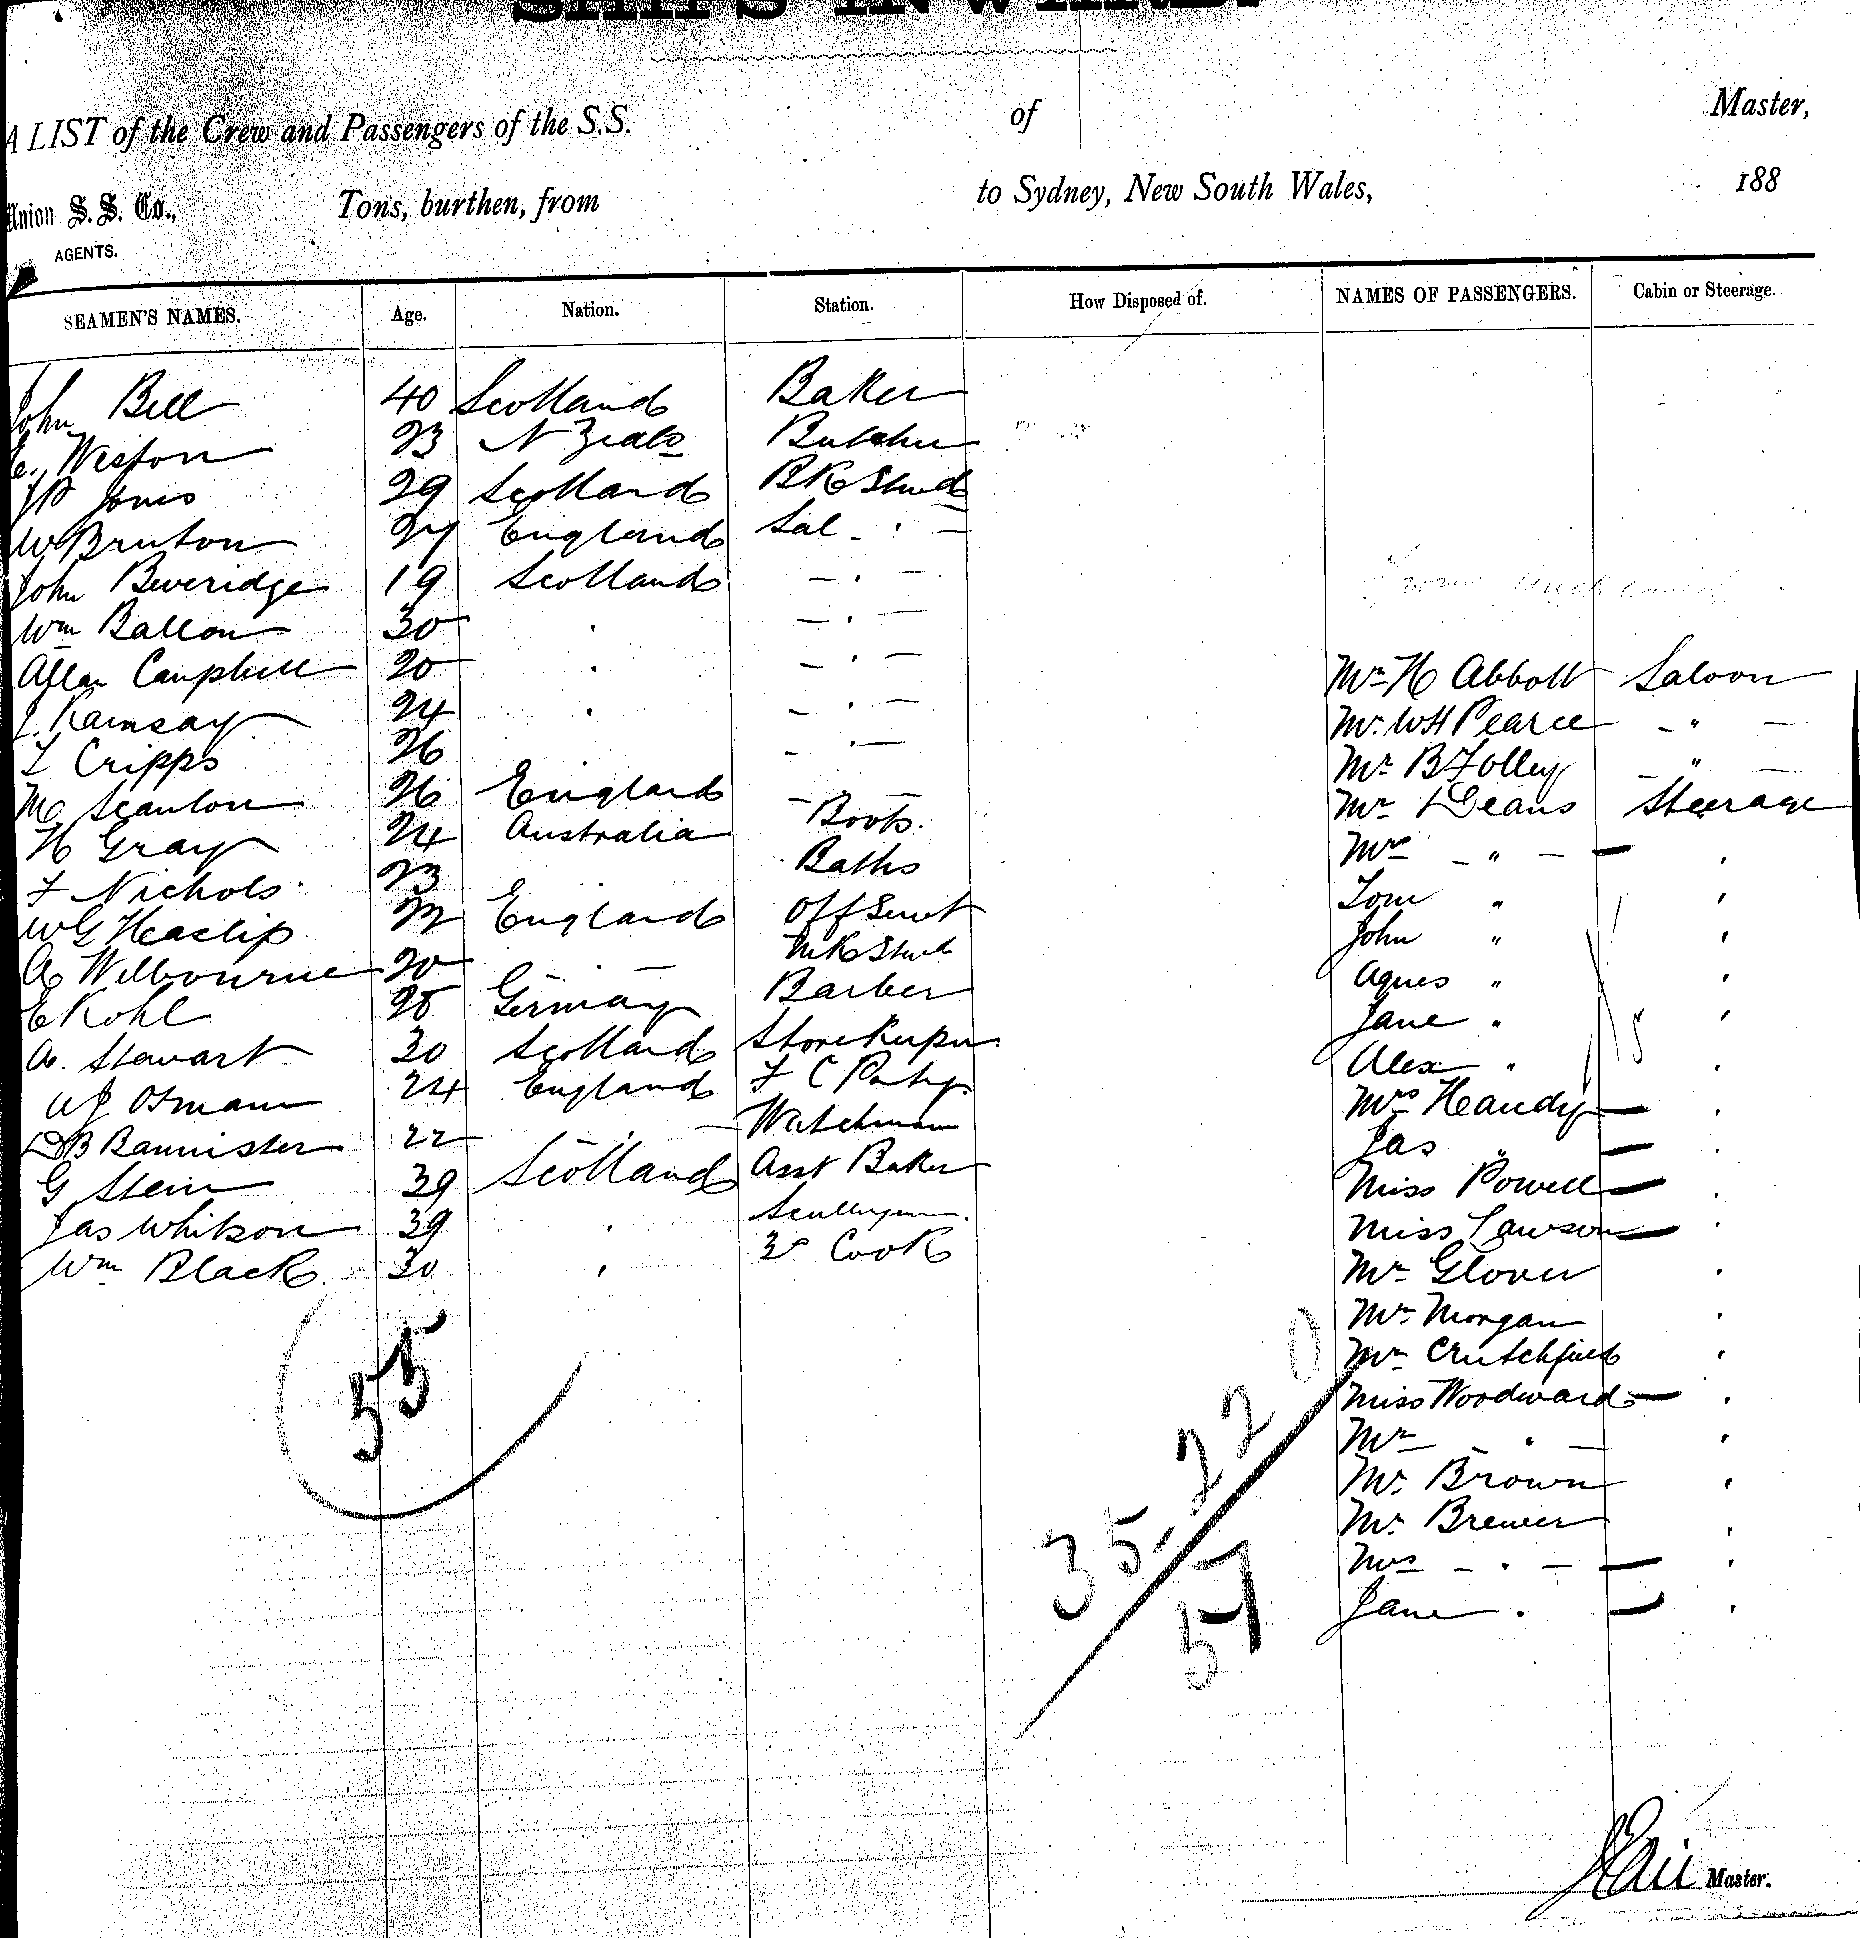 SHIPS INWARD.
A LIST of the Crew and Passengers of the S.S. of Master,
Union S. S. Co., Tons, burthen, from to Sydney, New South Wales, 188
AGENTS.
SEAMEN'S NAMES. Age. Nation. Station. How Disposed of. NAMES OF PASSENGERS. Cabin or Steerage.
John Bell 40 Scotland Baker
Weston 23 N Zeald Butcher
Jones 29 Scotland BK Stwd
W Bruton 27 England Sal - " -
John Beveridge 19 Scotland - " -
Wm Ballon 30 " - " -
Allan Campbell 20 " - " -
J. Ramsay 24 " - " -
Cripps 26 - " -
M Scanlon 26 England - -
H Gray 24 Australia Boots.
F Nichols 23 Baths
WG Heaslip 22 England Off Servt
A Welbourne 20 - " - Stwd
E Kohl 28 Germany Barber
A. Stewart 30 Scotland Storekeeper
WJ Osmann 24 England F C Pantry
DB Bannister 22 - " - Watchman
G Stein 39 Scotland Asst Baker
Jas Whitson 39 " Scullryman
Wm Black 30 " 3rd Cook
55
Mr H Abbott Saloon
Mr. WH Pearce - " -
Mr B Folley - " -
Mr Deans Steerage
Mrs - " - "
Tom " "
John " "
Agnes " "
Jane " "
Alex " "
Mrs Heandy "
Jas " "
Miss Powell "
Miss Lawson "
Mr Glover "
Mr Morgan "
Mr Crutchfield "
Miss Woodward "
Mr - " - "
Mr. Brown "
Mr. Brewer "
Mrs - " - "
Jane " "
35. 22 0
57
Master.